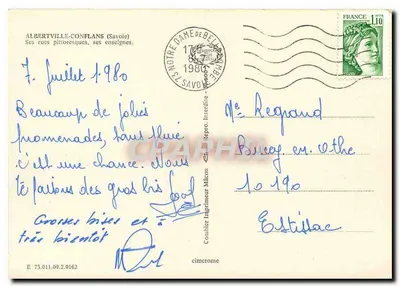 ALBERTVILLE-CONFLANS (Savoie)
Ses rues pittoresques, ses enseignes.
7. Juillet 1980
Beaucoup de jolies
promenades, sans pluie
c'est une chance. Nous
Te faisons des gros bis
Grosses bises et à
très bientôt
E 73.011.09.2.0162
73 NOTRE DAME DE BELLECOMBE
1980
SAVOIE
FRANCE
1,10
CPARAMA
Combier Imprimeur Mâcon
Repro. Interdite
cimcrome
Regrand
Bucey en Othe
10190
Estissac